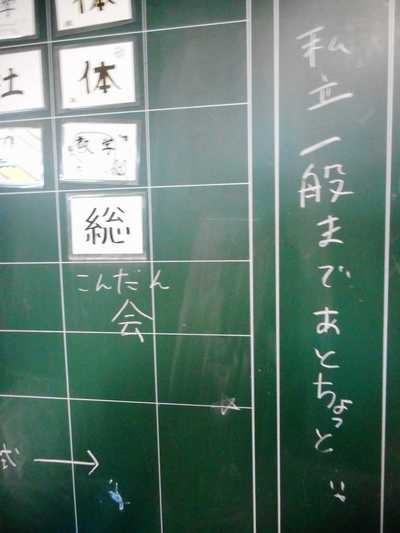 私立一般まであとちょっと
体
体
社
数学
総
こんだん
会
式 →